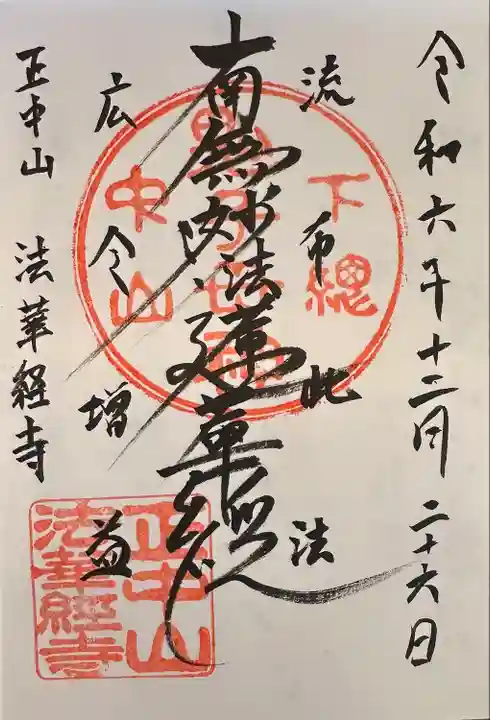 令和六年十二月二十六日
流布此法
南無妙法蓮華経
広令増益
正中山 法華経寺
下總
中山
正中山
法華經寺